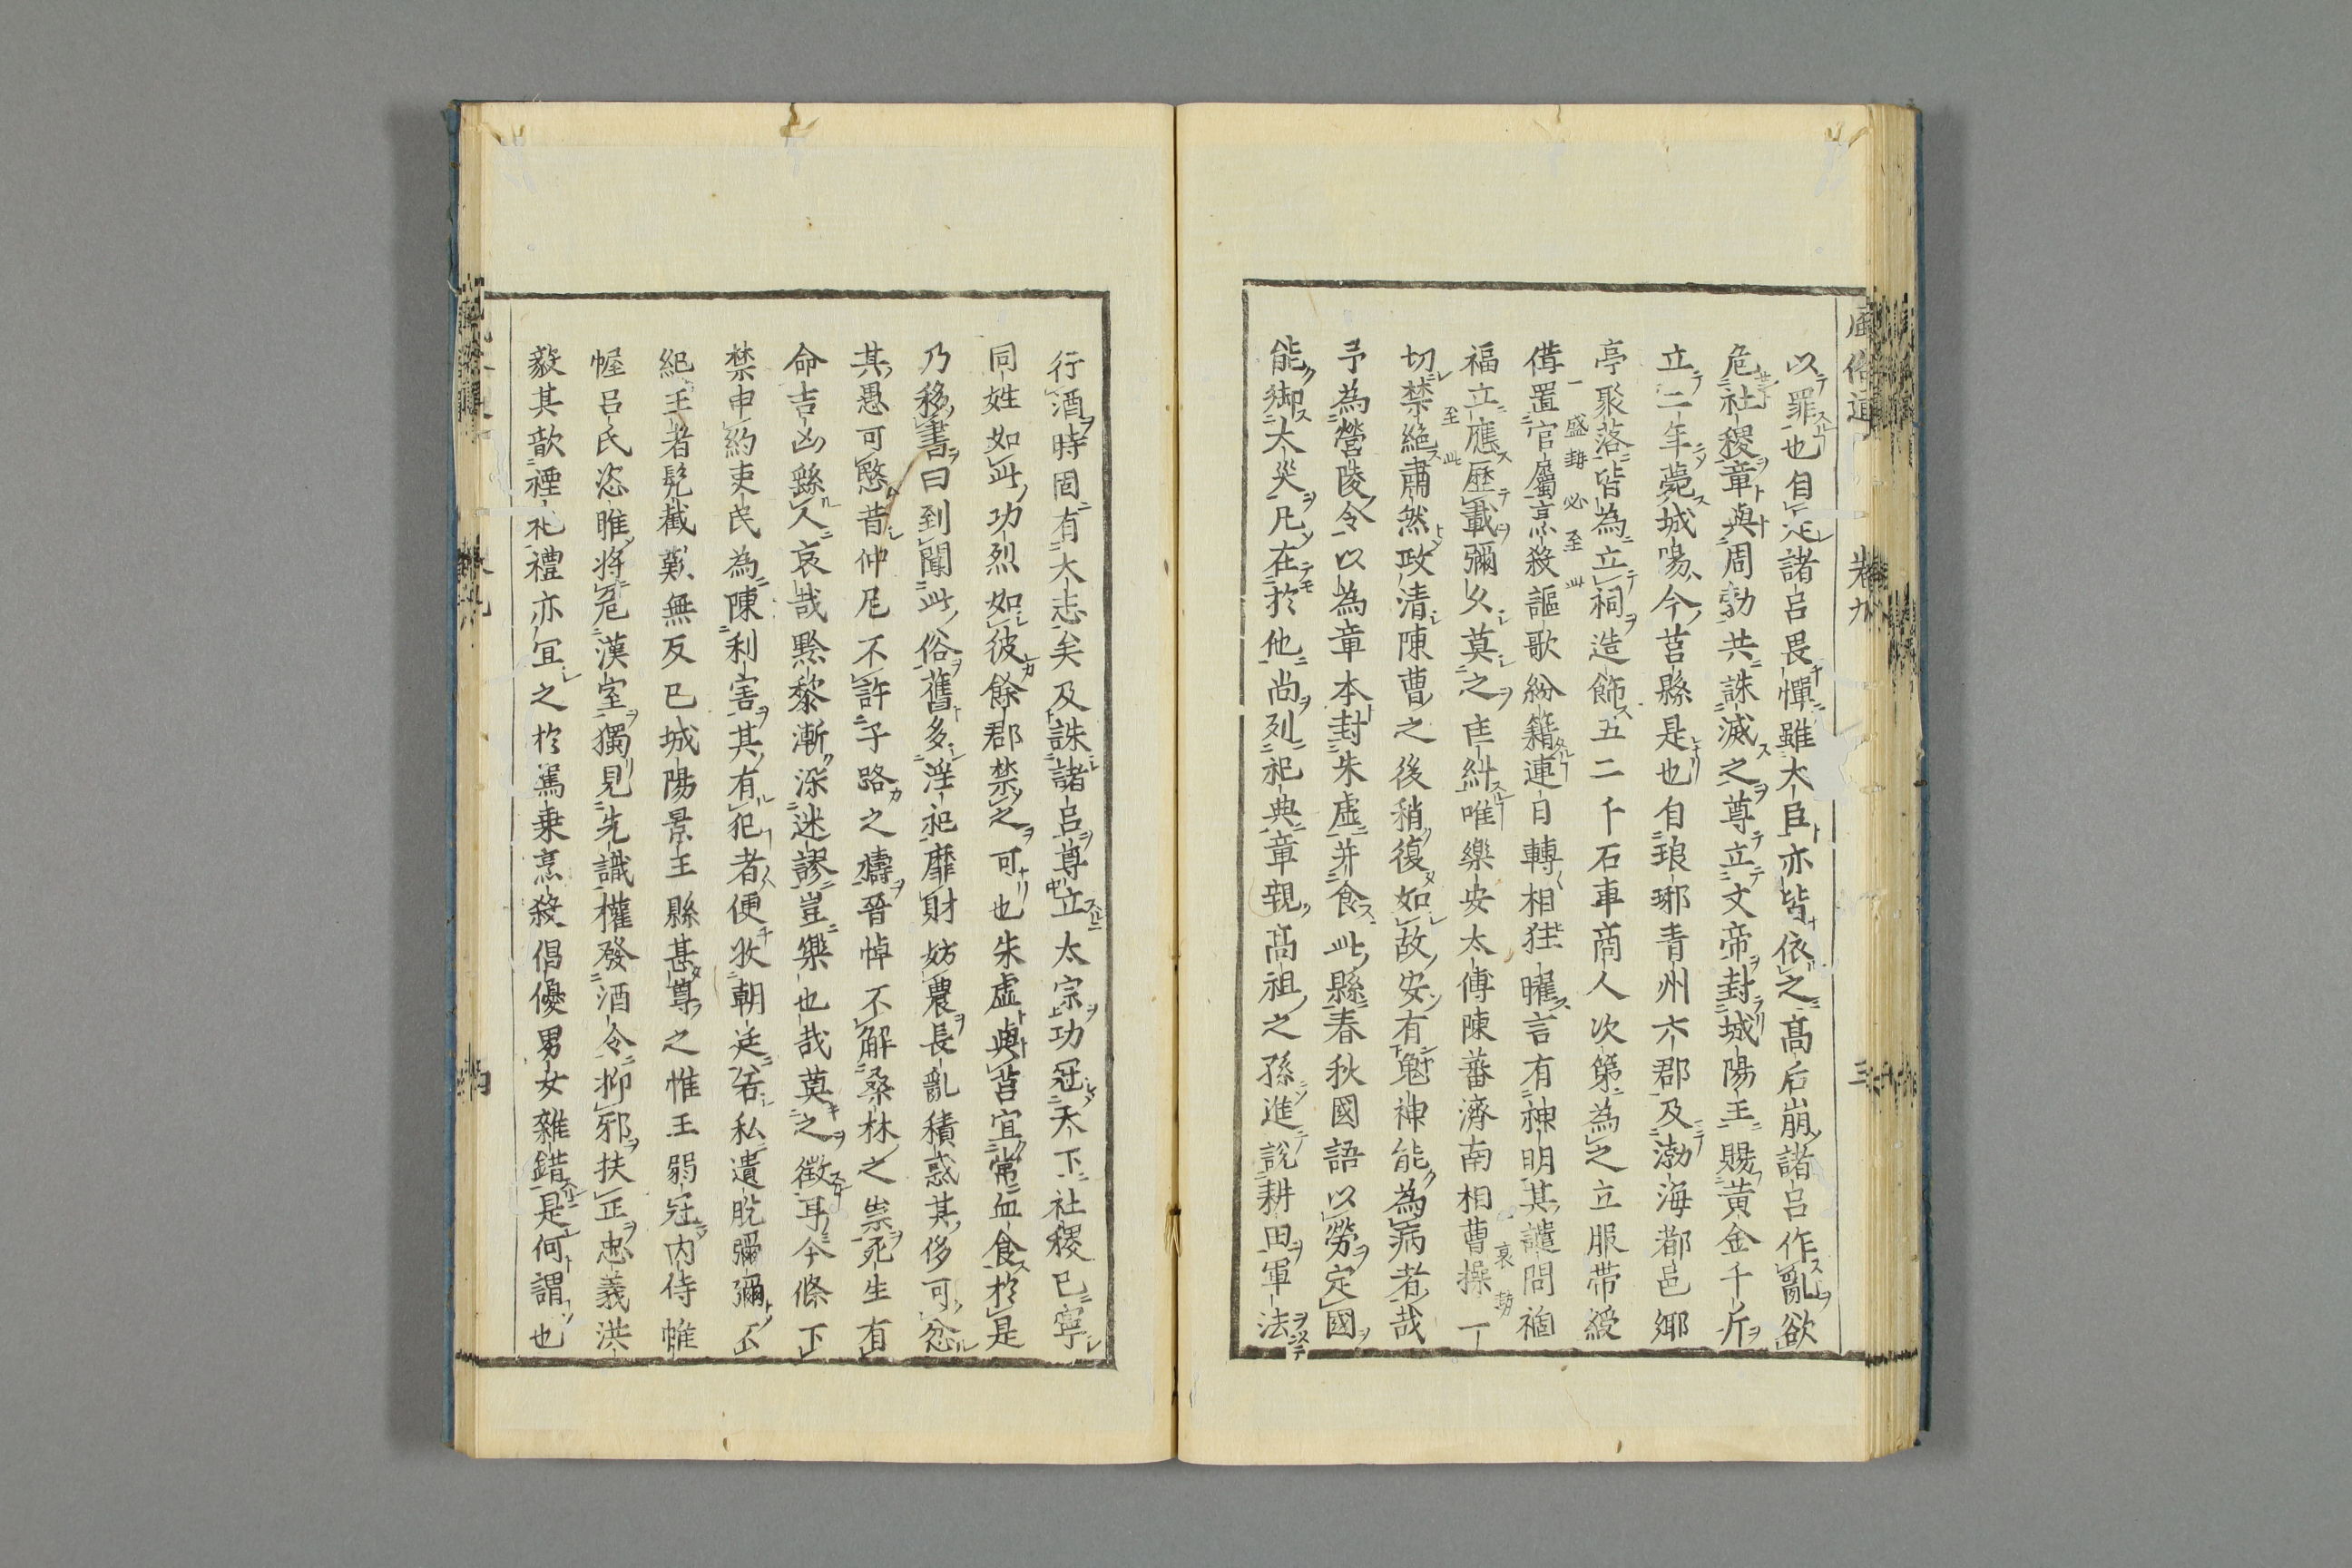 以罪也自是諸呂畏憚雖大臣亦皆依之髙后崩諸呂作亂欲
危社稷章與周勃共誅滅之尊立文帝封城陽王賜黄金千斤
立二年薨城陽今莒縣是也自琅琊青州六郡及渤海都邑鄉
亭聚落皆為立祠造飾五二千石車商人次第為之立服帶綬
備置官屬烹殺謳歌紛籍連日轉相狂曜言有神明其譴問禍
福立應歷載彌久莫之匡糾唯樂安太傅陳蕃濟南相曹操一
切禁絕肅然政清陳曹之後稍復如故安有鬼神能為病者哉
予為營陵令以為章本封朱虛并食此縣春秋國語以勞定國
能御大災凡在於他尚列祀典章親髙祖之孫進說耕田軍法
行酒時固有大志矣及誅諸呂尊立太宗功冠天下社稷已寧
同姓如此功烈如彼餘郡禁之可也朱虛與莒宜常血食於是
乃移書曰到聞此俗舊多淫祀靡財妨農長亂積惑其侈可忿
其愚可愍昔仲尼不許子路之禱晉悼不解桑林之祟死生有
命吉凶繇人哀哉黔黎漸深迷謬豈樂也哉莫之徵耳今條下
禁申約吏民為陳利害其有犯者便收朝廷若私遺脫彌彌不
絕王者髡截歎無反已城陽景王縣甚尊之惟王弱冠内侍帷
幄呂氏恣睢將危漢室獨見先識權發酒令抑邪扶正忠義洪
毅其歆禋祀禮亦宜之於駕乗烹殺倡優男女雜錯是何謂也